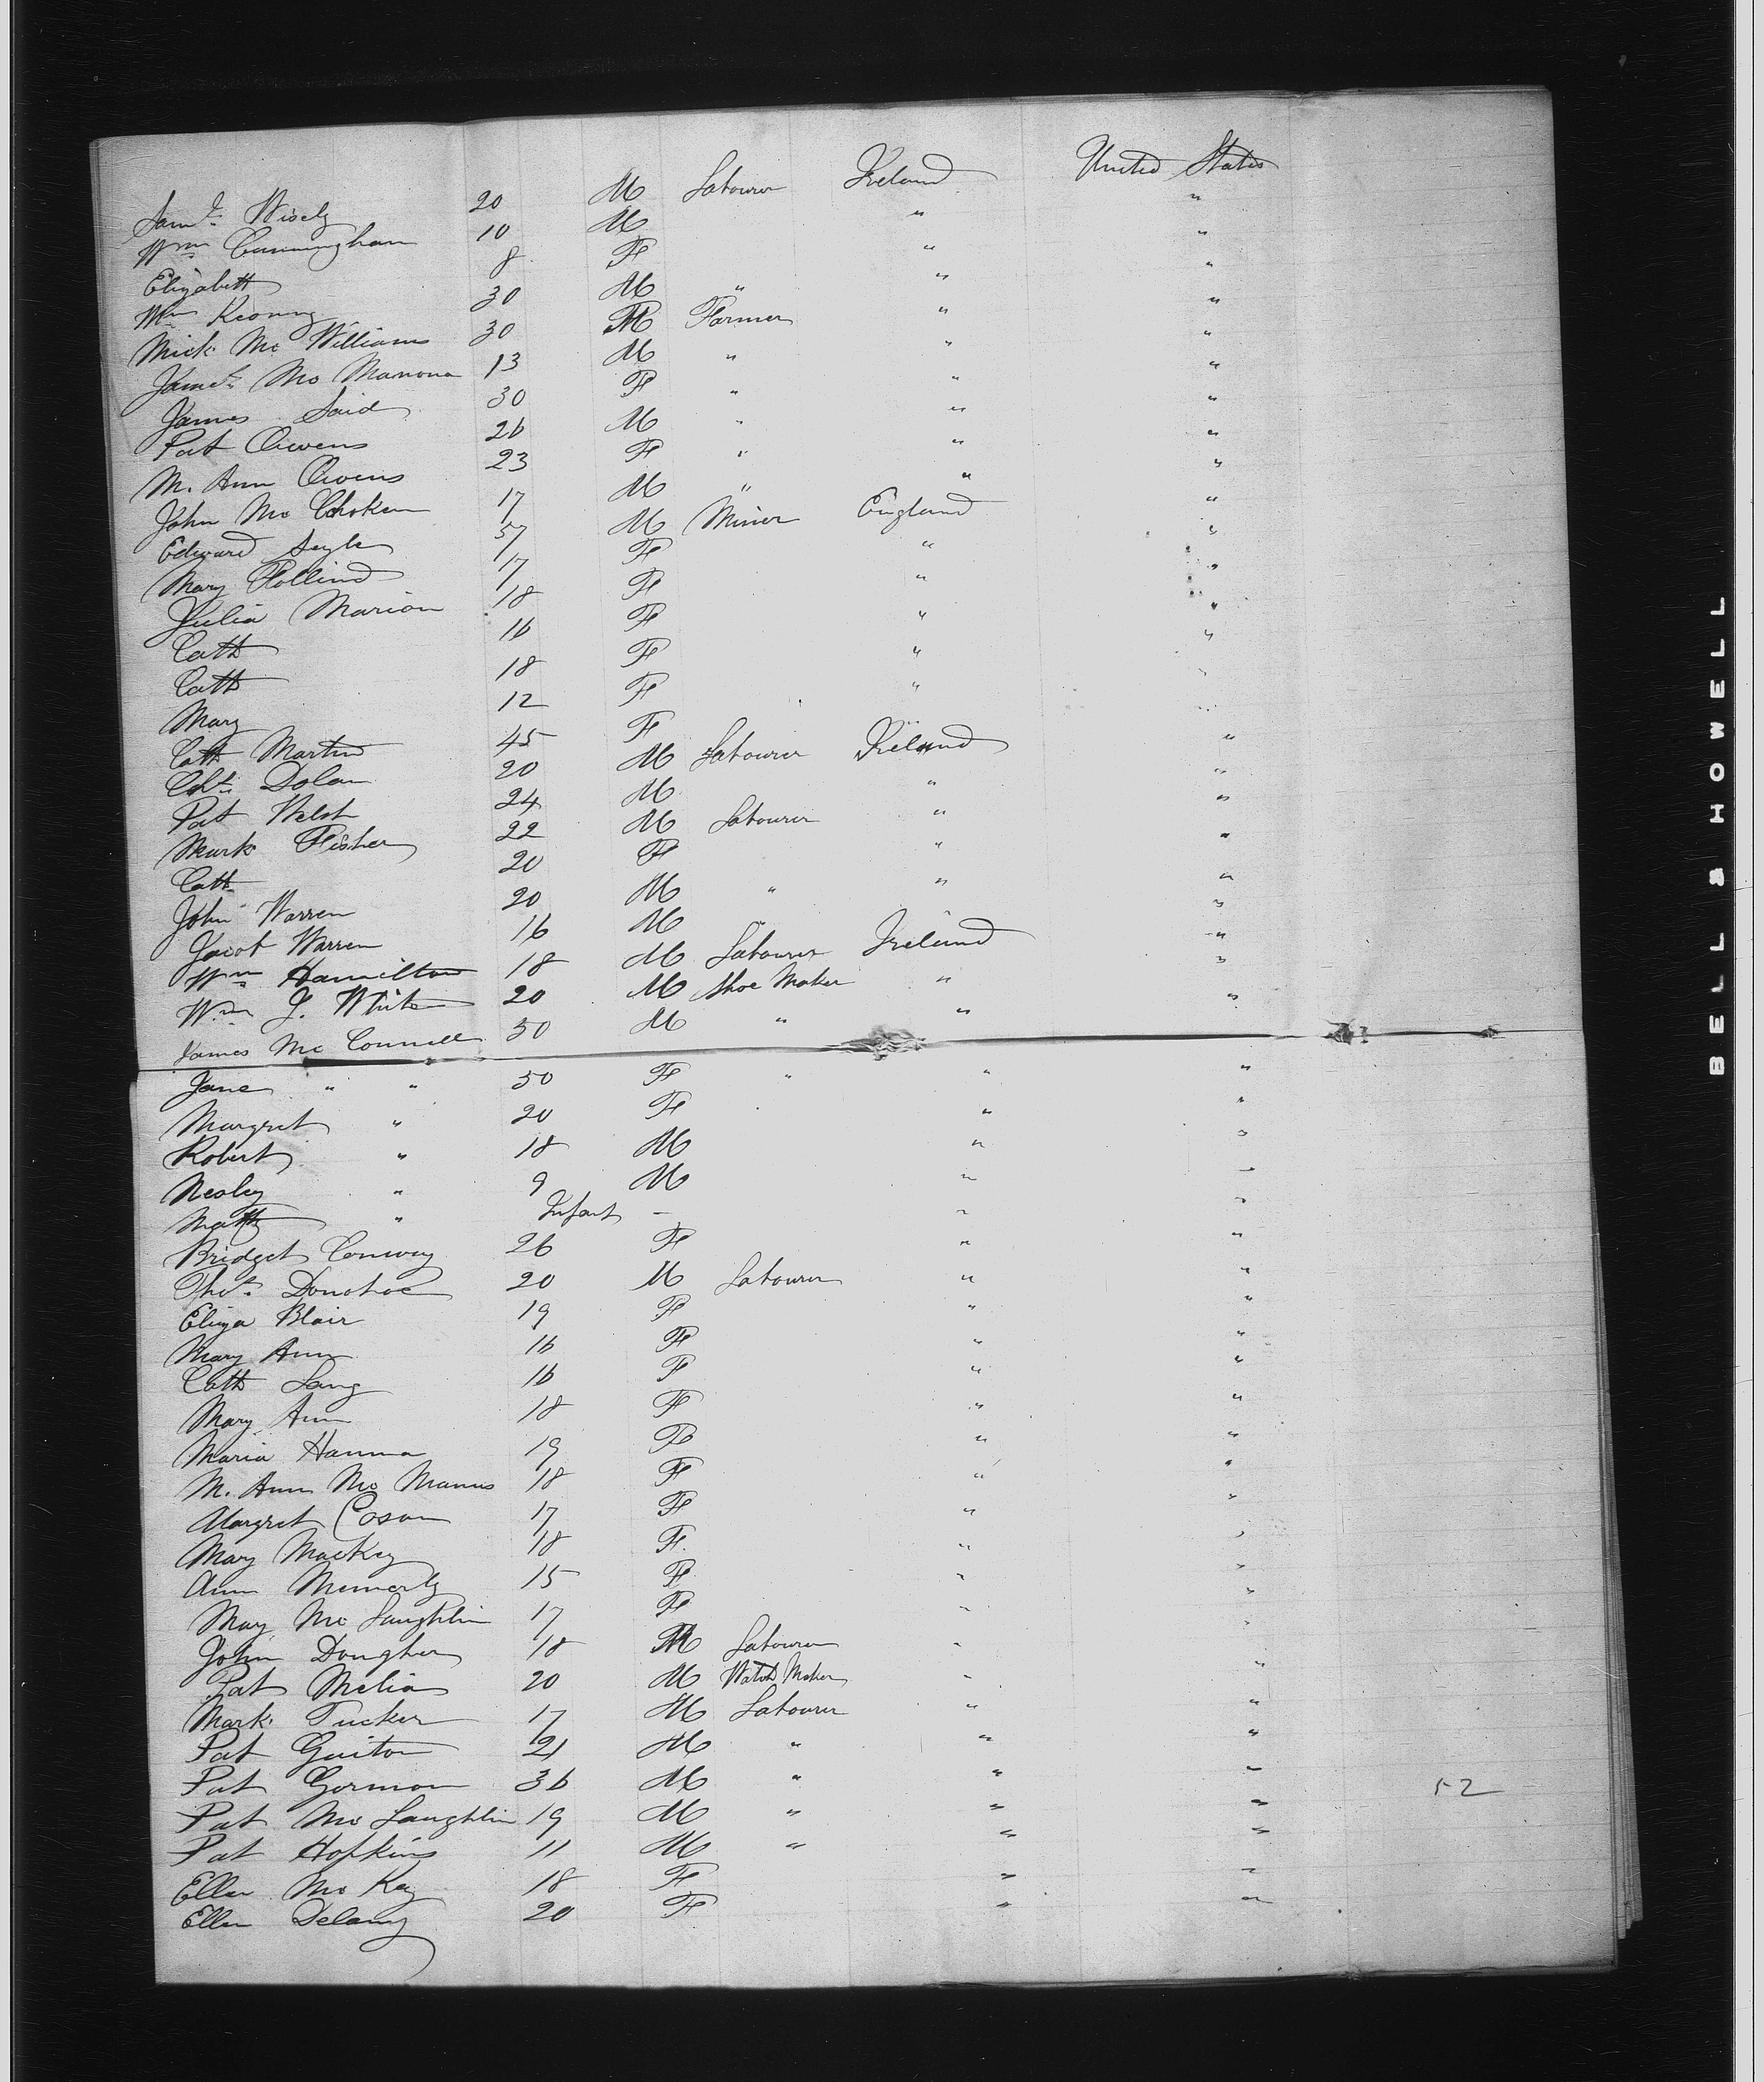 Saml. Wisely 20 M Labourer Ireland United States
Wm Cunningham 10 M " "
Elizabeth 8 F " "
Wm Keonny 30 M " " "
Mick Mc Williams 30 M Farmer " "
James Mc Manona 13 M " " "
James Said 30 F " " "
Pat Owens 26 M " " "
M. Ann Owens 23 F " " "
John Mc 17 M " " "
Edward 57 M Miner England "
Mary Hollind 17 F " "
Julia Marion 18 F " "
Cath 16 F " "
Cath 18 F " "
Mary 12 F " "
Cath Martin 45 F
Chs. Dolan 20 M Labourer Ireland "
Pat Welsh 24 M " "
Mark Fisher 22 M Labourer " "
Cath 20 F " "
John Warren 20 M " " "
Jacob Warren 16 M "
Wm Hamilton 18 M Labourer Ireland "
Wm J. White 20 M Shoe Maker " "
James Mc Connell 50 M " " "
Jane " " 50 F " " "
Margret " 20 F " "
Robert " 18 M " "
Wesley " 9 M " "
Matty " Infant — " "
Bridget Conway 26 F " "
Thos. Donohoe 20 M Labourer " "
Eliza Blair 19 F " "
Mary Ann 16 F " "
Cath Lang 16 F " "
Mary Ann 18 F " "
Maria Hanna 19 F " "
M. Ann Mc Manus 18 F " "
Margret Cosan 17 F " "
Mary Mackey 18 F " "
Ann 15 F " "
May Mc Laughlin 17 F " "
John Dougher 18 M Labourer " "
Pat Melia 20 M Watch Maker " "
Mark Tucker 17 M Labourer " "
Pat Guiton 21 M " " "
Pat Gorman 36 M " " "
Pat Mc Laughlin 19 M " " "
Pat Hopkins 11 M " " "
Ellen Mc Kay 18 F " "
Ellen Delany 20 F " "
52
BELL & HOWELL